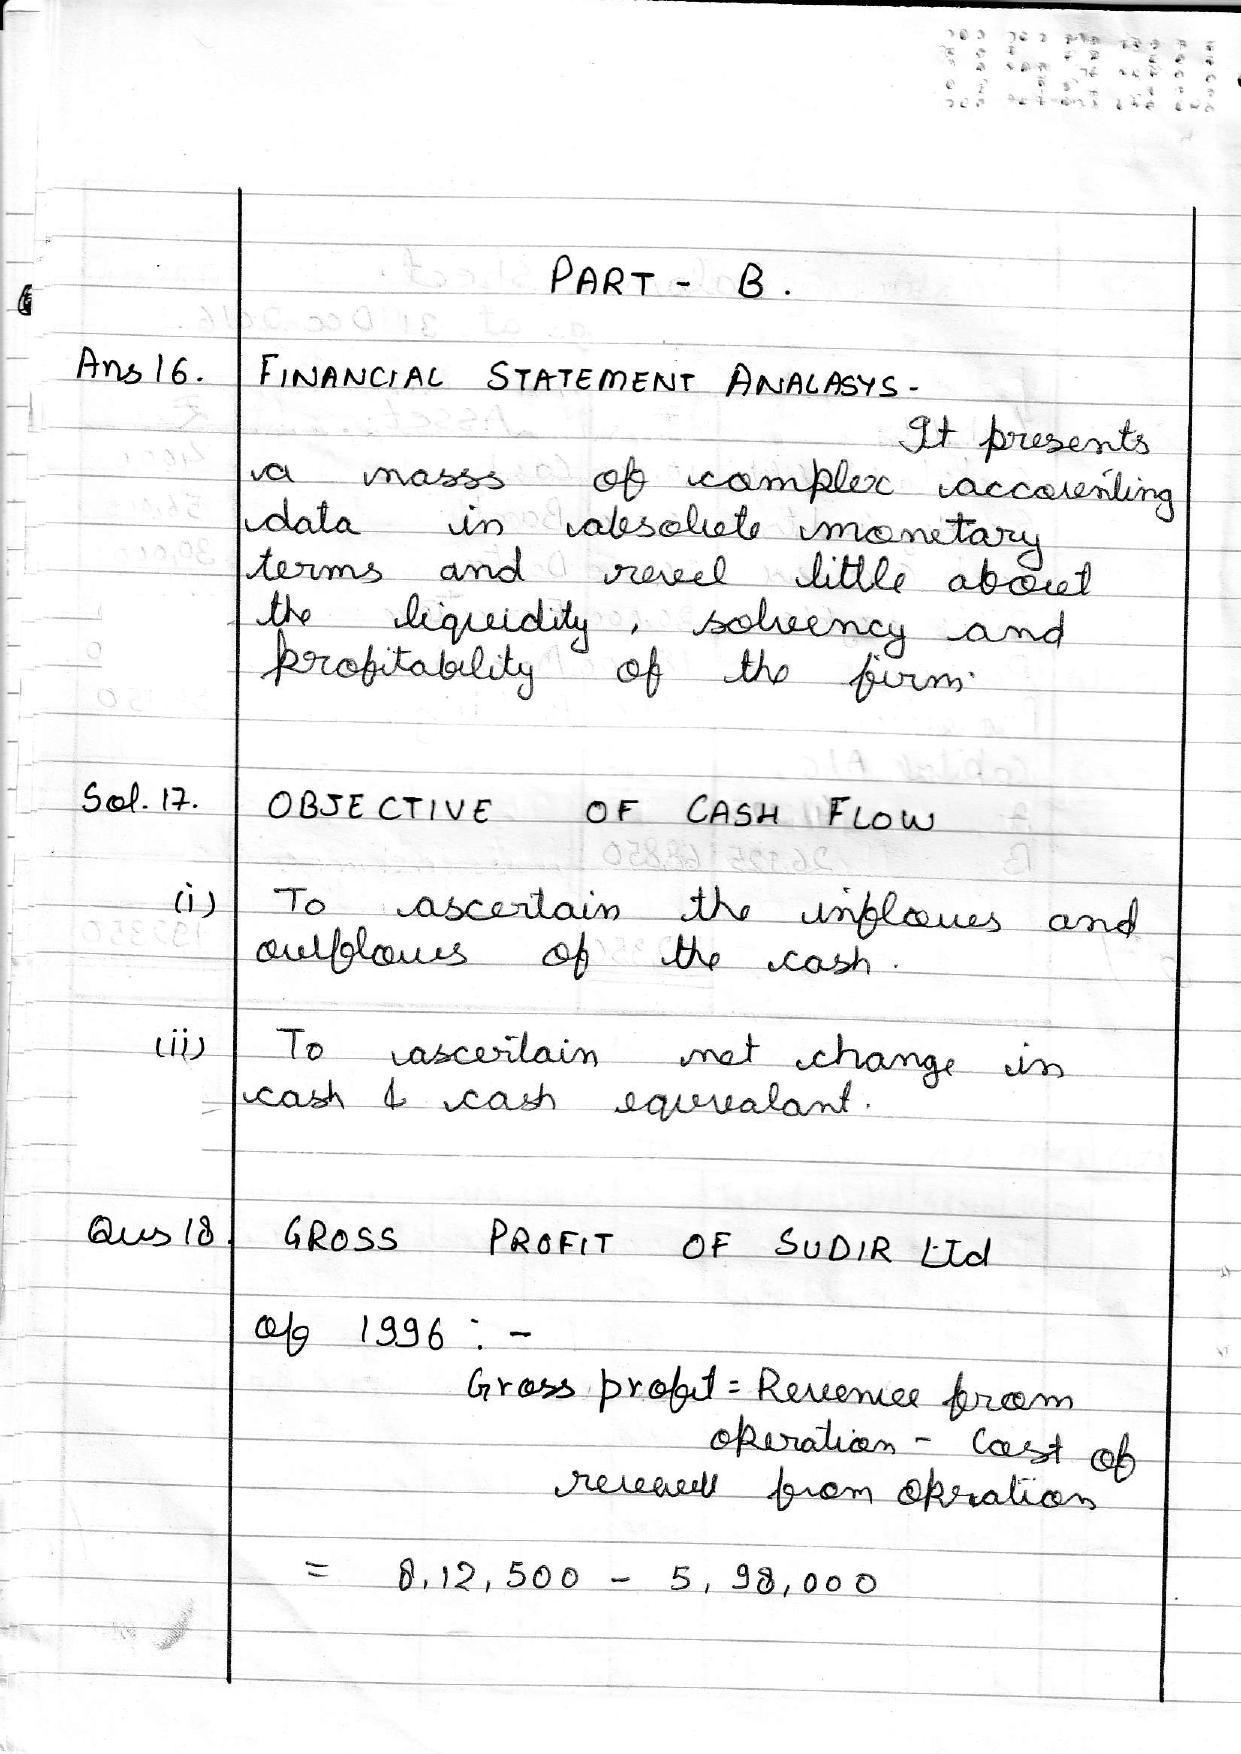 PART - B.
Ans 16. FINANCIAL STATEMENT ANALASYS -
It presents
a masss of complex accounting
data in absolute monetary
terms and reveel little about
the liquidity, solvency and
profitability of the firm.
Sol. 17. OBJECTIVE OF CASH FLOW
(i) To ascertain the inflows and
outflows of the cash.
(ii) To ascertain net change in
cash & cash equivalant.
Qus 18. GROSS PROFIT OF SUDIR Ltd
of 1996 : -
Gross profit = Revenue from
operation - Cost of
from operation
= 8,12,500 - 5,98,000